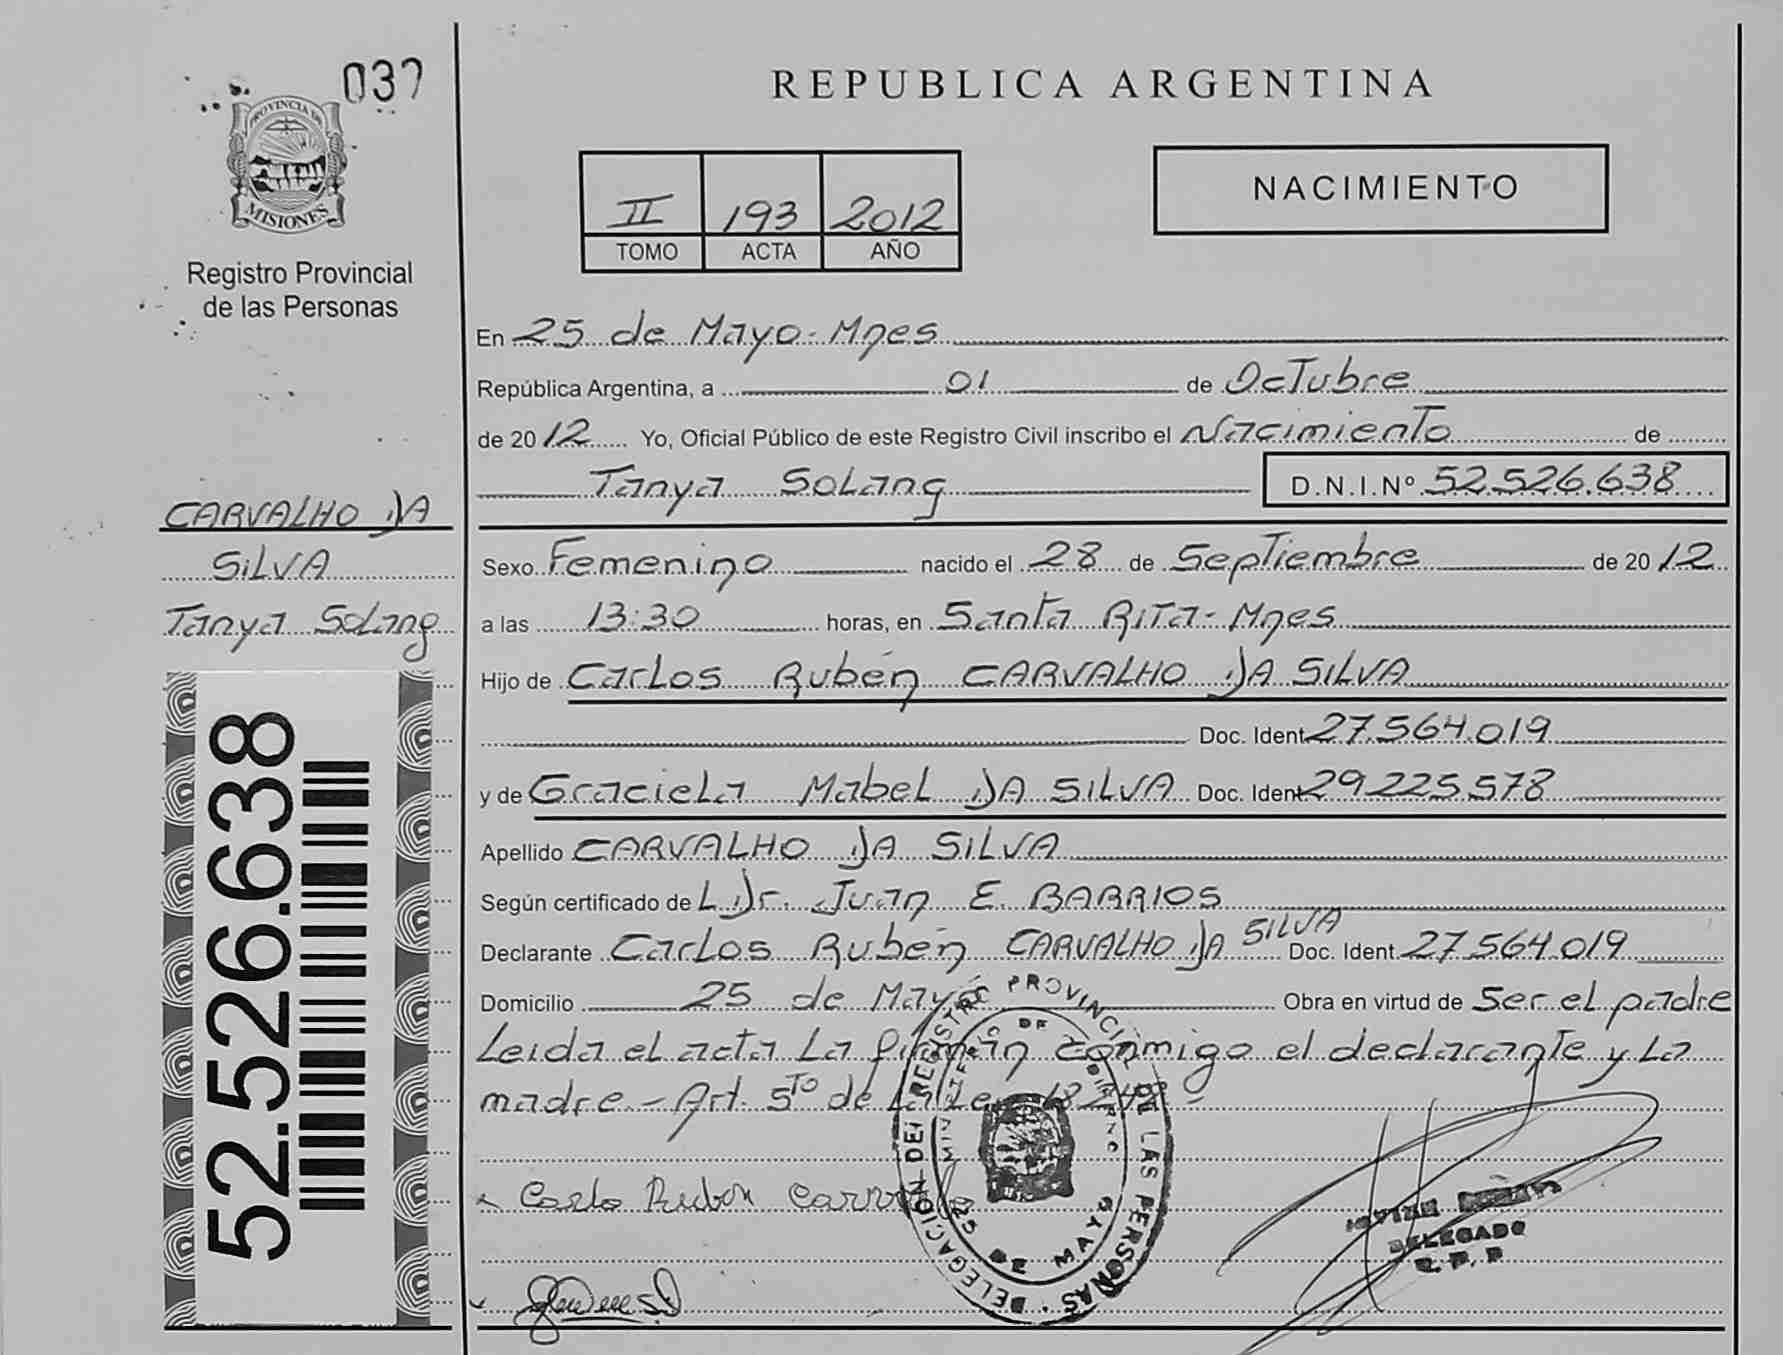 037
PROVINCIA DE
MISIONES
Registro Provincial
de las Personas
CARVALHO DA
SILVA
Tanya Solang
52.526.638
REPUBLICA ARGENTINA
II 193 2012
TOMO ACTA AÑO
NACIMIENTO
En 25 de Mayo-Mnes
República Argentina, a 01 de Octubre
de 2012 Yo, Oficial Público de este Registro Civil inscribo el Nacimiento de
Tanya Solang D.N.I.Nº 52.526.638
Sexo Femenino nacido el 28 de Septiembre de 2012
a las 13:30 horas, en Santa Rita-Mnes
Hijo de Carlos Rubén CARVALHO DA SILVA
Doc. Ident 27.564.019
y de Graciela Mabel DA SILVA Doc. Ident 29.225.578
Apellido CARVALHO DA SILVA
Según certificado de L.Dr. Juan E. BARRIOS
Declarante Carlos Rubén CARVALHO DA SILVA Doc. Ident. 27.564.019
Domicilio 25 de Mayo Obra en virtud de Ser el padre
Leida el acta La firman conmigo el declarante y La
madre.- Art. 5to de La Ley 18.248
DELEGACION DEL REGISTRO PROVINCIAL DE LAS PERSONAS
MINISTERIO DE GOBIERNO
25 DE MAYO
DELEGADO
R.P.P